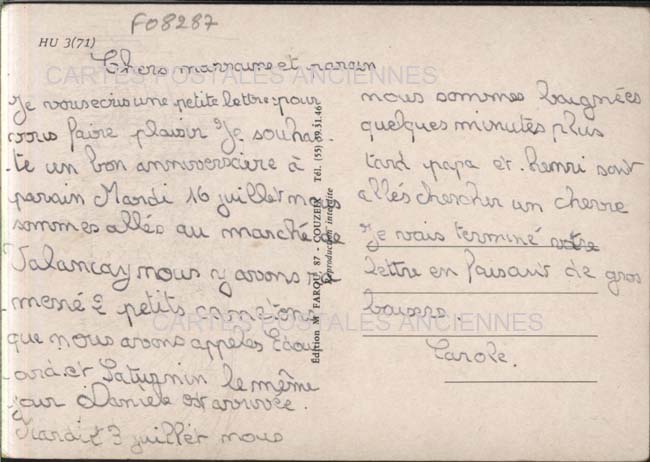 F08287
HU 3(71)
Chers marraine et parain
CARTES POSTALES ANCIENNES
Je vous ecris une petite lettre pour
vous faire plaisir Je souhai
te un bon anniversaire à
parain Mardi 16 juillet nous
sommes allés au marché de
Valancay nous y avons
mené 2 petits canetons
que nous avons appelés Edou
ard et Saturnin le même
jour Daniele est arrivée.
Mardi 3 juillet nous
Édition M. FAROU, 87 - COUZEIX Tél. (55) 39.31.46
Reproduction interdite
nous sommes baignées
quelques minutes plus
tard papa et henri sont
allés chercher un chevre
Je vais terminé votre
lettre en faisant de gros
baisers.
Carole.
CARTES POSTALES ANCIENNES